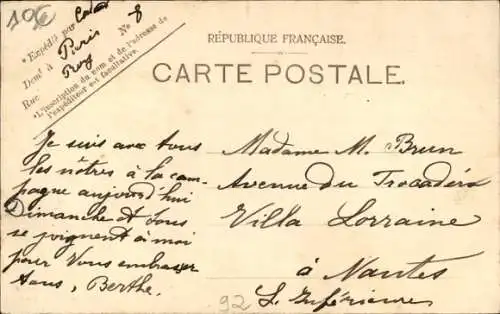 10€
*Expédié par
Demt à Paris
Rue Roy No 8
*L'inscription du nom et de l'adresse de
l'expéditeur est facultative.
RÉPUBLIQUE FRANÇAISE.
CARTE POSTALE.
Je suis avec tous
les nôtres à la cam-
pagne aujourd'hui
Dimanche et tous
se joignent à moi
pour Vous embrasser
tous, Berthe.
Madame M. Brun
Avenue du Trocadéro
Villa Lorraine
à Nantes
L. Inférieure
92